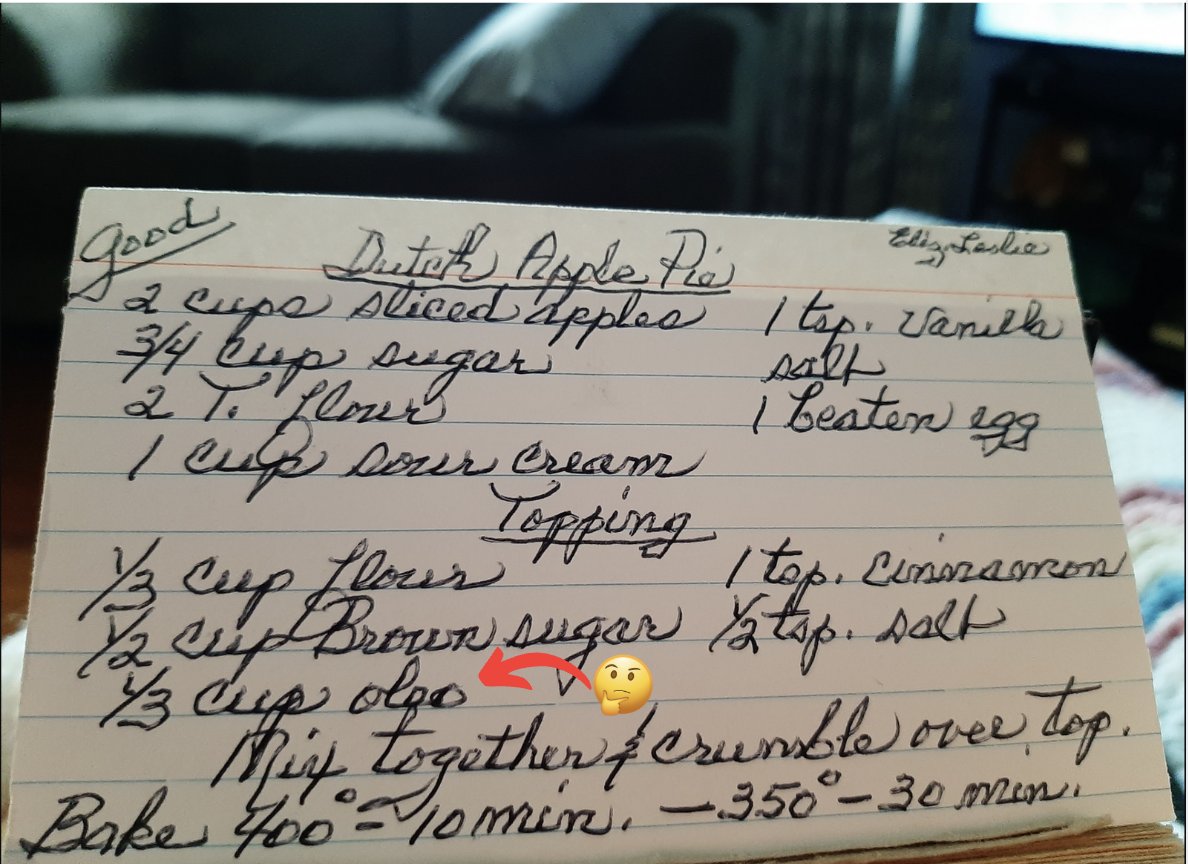 good
Dutch Apple Pie
Eliz Leslie
2 cups sliced apples
3/4 cup sugar
2 T. flour
1 cup sour cream
1 tsp. Vanilla
salt
1 beaten egg
Topping
1/3 cup flour
1/2 cup Brown sugar
1/3 cup oleo
1 tsp. Cinnamon
1/2 tsp. salt
Mix together & crumble over top.
Bake 400° - 10 min. - 350° - 30 min.